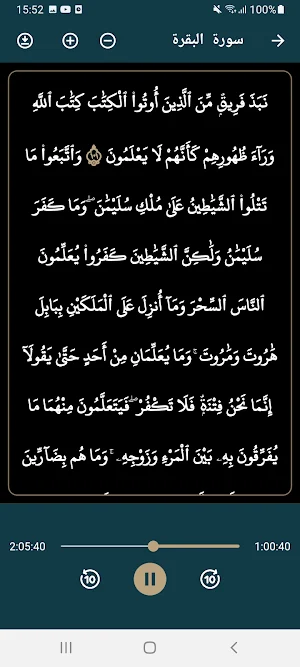 15:52
100%
سورة البقرة
نَبَذَ فَرِيقٌ مِّنَ ٱلَّذِينَ أُوتُوا۟ ٱلْكِتَٰبَ كِتَٰبَ ٱللَّهِ
وَرَآءَ ظُهُورِهِمْ كَأَنَّهُمْ لَا يَعْلَمُونَ ١٠١ وَٱتَّبَعُوا۟ مَا
تَتْلُوا۟ ٱلشَّيَٰطِينُ عَلَىٰ مُلْكِ سُلَيْمَٰنَ ۖ وَمَا كَفَرَ
سُلَيْمَٰنُ وَلَٰكِنَّ ٱلشَّيَٰطِينَ كَفَرُوا۟ يُعَلِّمُونَ
ٱلنَّاسَ ٱلسِّحْرَ وَمَآ أُنزِلَ عَلَى ٱلْمَلَكَيْنِ بِبَابِلَ
هَٰرُوتَ وَمَٰرُوتَ ۚ وَمَا يُعَلِّمَانِ مِنْ أَحَدٍ حَتَّىٰ يَقُولَآ
إِنَّمَا نَحْنُ فِتْنَةٌ فَلَا تَكْفُرْ ۖ فَيَتَعَلَّمُونَ مِنْهُمَا مَا
يُفَرِّقُونَ بِهِۦ بَيْنَ ٱلْمَرْءِ وَزَوْجِهِۦ ۚ وَمَا هُم بِضَآرِّينَ
2:05:40 1:00:40
10 10